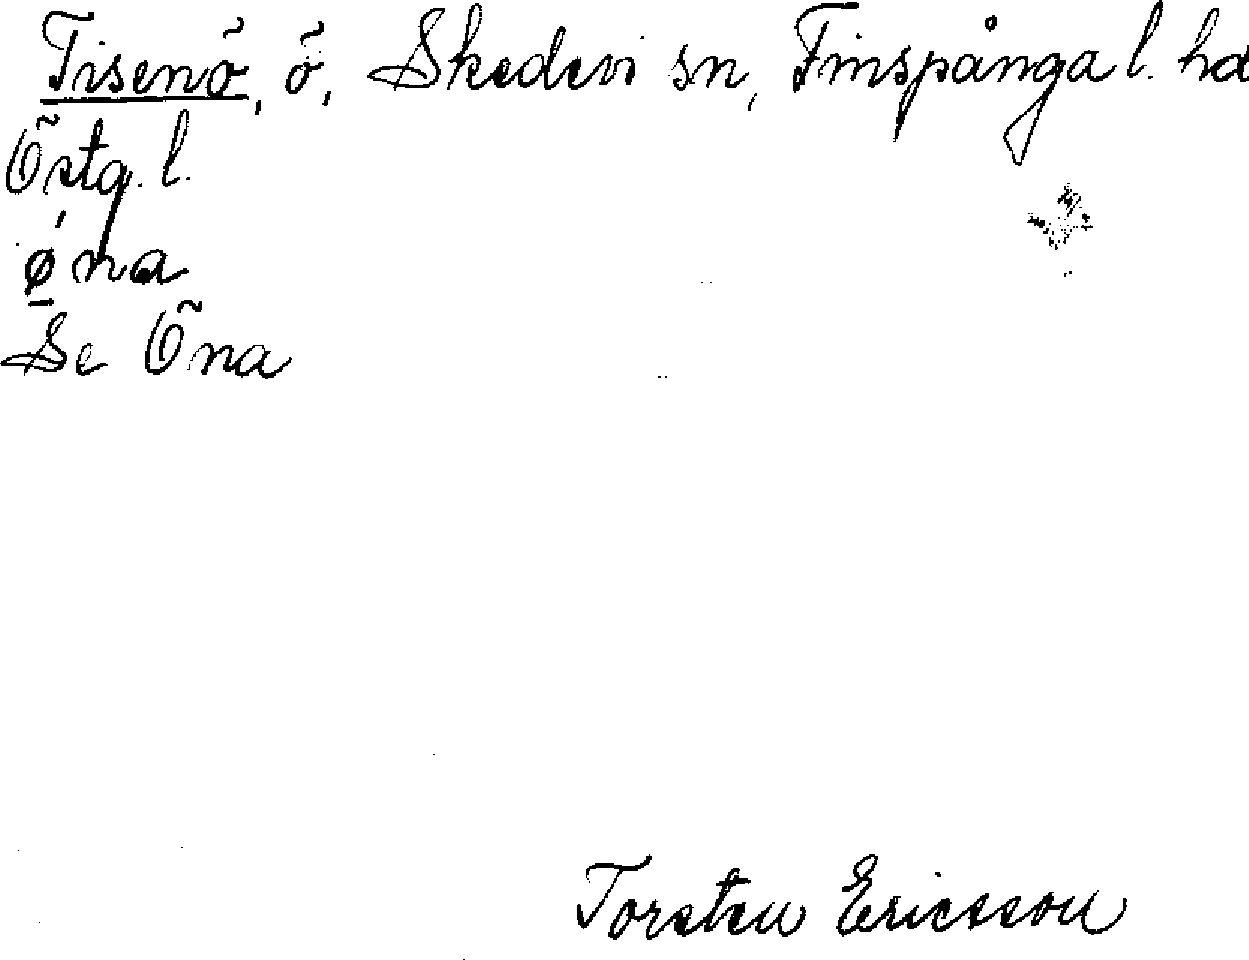 Tisenö, ö, Skedevi sn, Finspånga l. hd
Östg. l.
ǿna
Se Öna
Torsten Ericsson